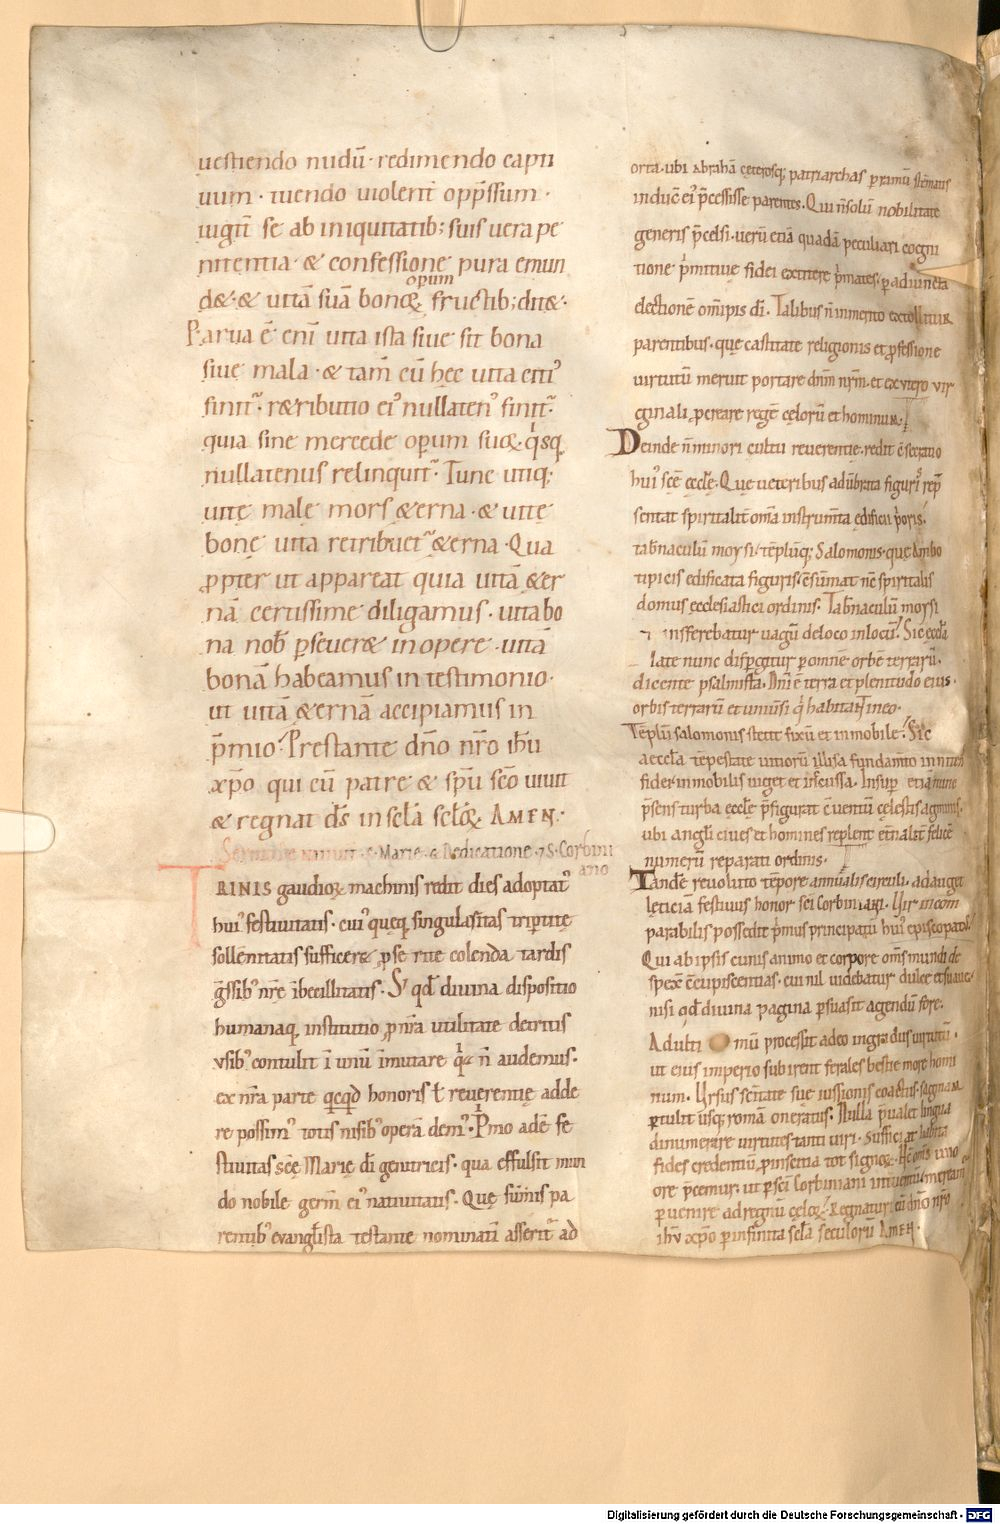 uestiendo nudū· redimendo capti
uum· tuendo uiolent̄ opp̄ssum·
iugit̄ se ab iniquitatib; suis uera pe
nitentia· & confessione pura emun
opum
d&· & uitā suā bonoꝝ fructib; dit&·
Parua ē eni uita ista siue sit bona
siue mala· & tam̄ cū hęc uita citi᾿
finit᷒· r&ributio ei᾿ nullaten᾿ finit᷒·
quia sine mercede operum suoꝝ q̇sq
nullatenus relinquit᷒· Tunc utiq;
uitę malę mors &erna· & uitę
bonę uita retribuet᷒ &erna· Qua
ꝓpter ut appareat quia uitā &er
nā certissime diligamus· uita bo
na nob̄ perseuer& in opere· uitā
bonā habeamus in testimonio·
ut uitā &ernā accipiamus in
p̄mio· Prestante dn̄o nr̄o ih̄u
xp̄o qui cū patre & sp̄u sc̄o uiuit
& regnat d̄s in sclā scloꝝ AMEN·
S· Marię· & Dedicatione· 7 S· Corbini
ano
TRINIS gaudioꝝ machinis redit dies adoptat᾿
hui᾿ festiuitatis· cui᾿ queq; singularitas tripertitę
sollēnitatis suffecer& ꝑ se rite colenda tardis
gr̄ssib᾿ nr̄ę ībecillitatis· S; qd̄ diuina dispositio
humanaq; institutio ꝓ nr̄a utilitate decretis
usib᾿ contulit ī unū īmutare n̄ audemus·
ex nr̄a parte qcqd honoris ł reuerentię adde
re possim᾿ totis nisib᾿ operā dem᾿· P̄mo adē fe
stiuitas sc̄ę Marię dī genitricis· qua effulsit mun
do nobile germ̄ ei᾿ natiuitatis· Quę sūmis pa
rentib᾿ evanglīsta testante nominatī asserit᷒ ad
orta· ubi abrahā cęterosq; patriarchas p primū stēmatis
inducē ei᾿ p̄cessisse parentes· Qui n̄ solū nobilitate
generis p̄celsi· uerū etiā quadā peculiari cogni
tione p̄mitiuę fidei extitere p̄mates· p adiuncta
dectionē om̄ipis dī· Talibus n̄ inmerito extollitur
parentibus· quę castitate religionis et ꝓfessione
uirtutū meruit portare dn̄m nr̄m· et ex utero uir
ginali ꝓcreare regē cęlorū et hominum·
Deinde n̄ minori cultu reuerentię· redit ē sacratio
hui᾿ sc̄ę ęccl̄ę· Quę ueteribus adūbrata figuris rep̄
sentat spiritalit̄ om̄ia instrum̄ta edificii p̄oris·
tab̄naculū moysi· tēplūq; Salomonis· quę Ambo
tipicis edificata figuris· ēsūmat nc̄ spiritalis
domus ęcclesiastici ordinis· Tab̄naculū moysi
transferebatur uagū de loco in locū· Sic ęccl̄a
late nunc disp̄gitur per omnē orbē terrarū·
dicente psalmista· Dn̄i ē terra et plenitudo eius·
orbis terrarū et uniūsi q̇ habitant in eo·
Tēplū salomonis stetit fixū et inmobile· Sic
aeccl̄a tēpestate uitiorū illisa fundam̄to inniti
fidei· inmobilis uiget et
p̄sens turba ęccl̄ę p̄figurat ēuentū cęlestis agminis·
ubi anglī ciues et homines replent ęt̄nalit̄ felicē
numerū reparati ordinis·
Tandē reuoluto tēpore annualis circuli· adauget
lęticiā festiuus honor sc̄i Corbiniani· Uir incom
parabilis possedit p̄mus principatū hui᾿ episcopat᾿·
Qui ab ipsis cunis animo et corpore om̄s mundi de
spexit ēcupiscentias· cui nil uidebatur dulce et suaue·
nisi qd̄ diuina pagina p̄suasit agendū fore·
Adulti mū processit adeo in gradus uirtutū·
ut eius imperio subirent ferales bestię more homi
num· Ursus seruitutē suę iussionis coactus· sagmam
ꝑtulit usq; romā oneratus· Nulla p̄ualet lingua
dinumerare uirtutes tanti uiri· Sufficiat habita
fides credentiū ꝓ insertia tot signoꝝ· Hęc om̄s uno
ore p̄cemur· ut p sc̄i Corbiniani
peruenire ad regnū cęloꝝ· Regnatur cū dn̄o nr̄o
ih̄u xp̄o p infinita scl̄a seculorū AMEN·
Digitalisierung gefördert durch die Deutsche Forschungsgemeinschaft - DFG